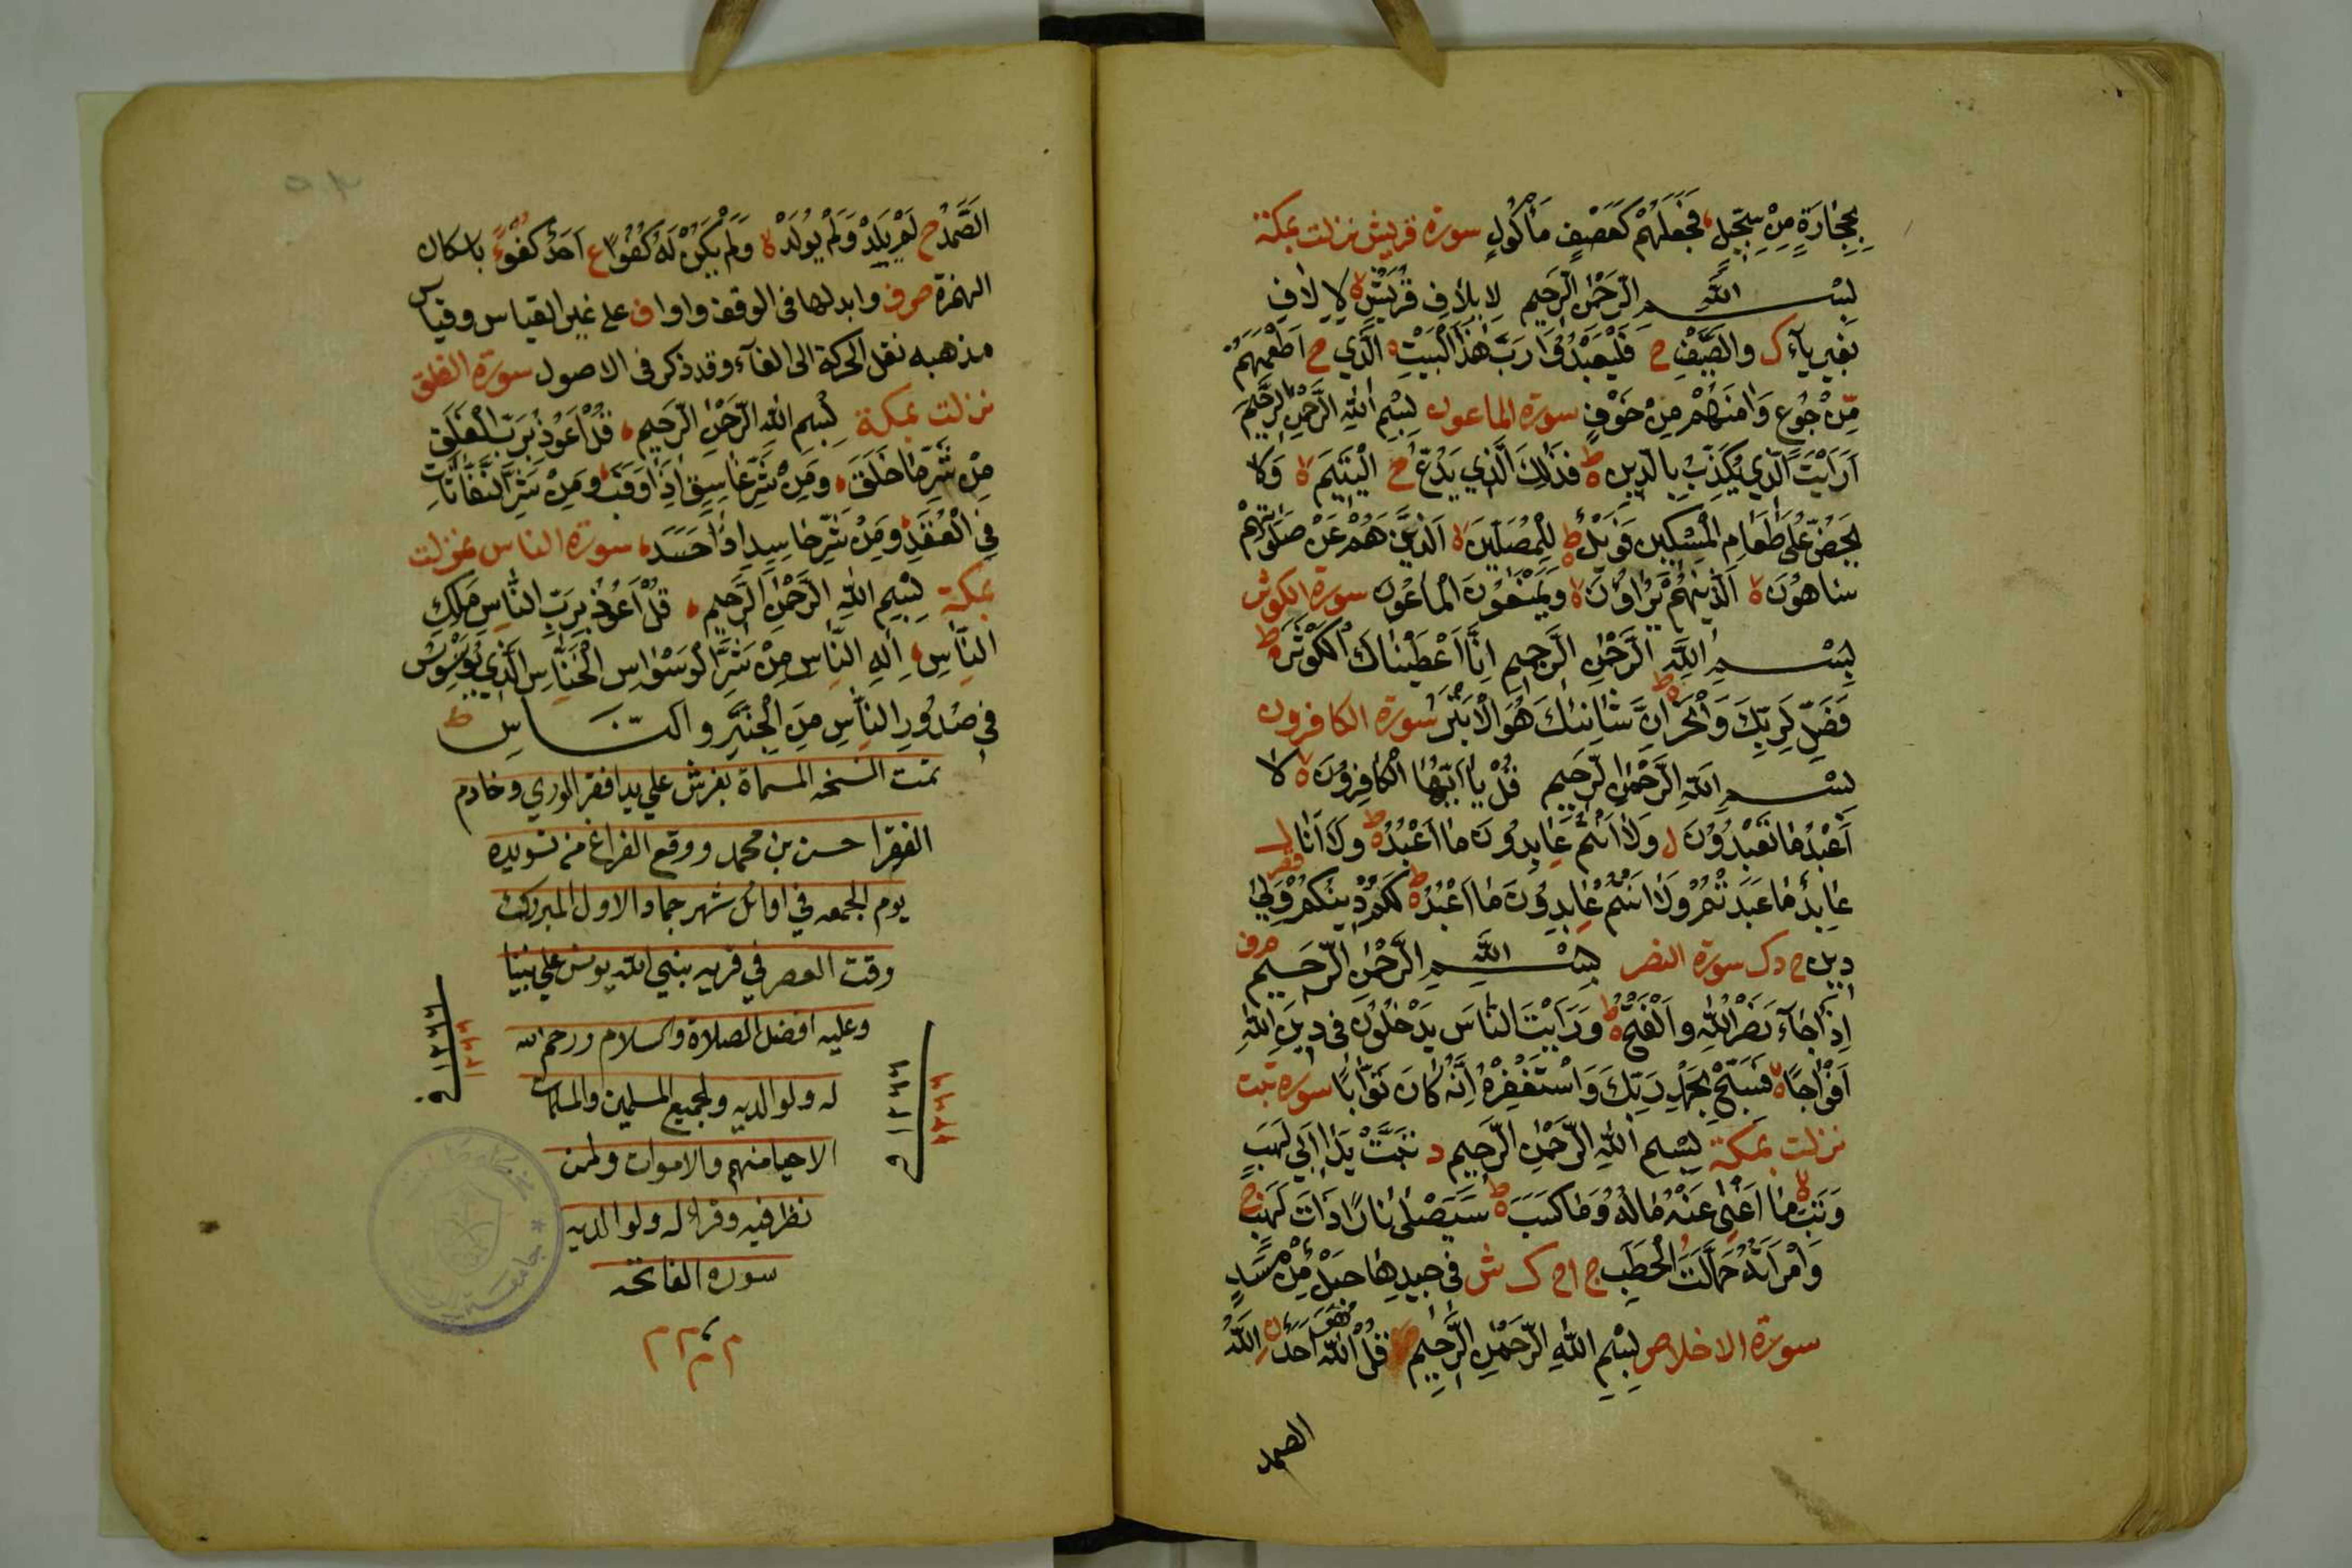 بِحِجَارَةٍ مِنْ سِجِّيلٍ فَجَعَلَهُمْ كَعَصْفٍ مَأْكُولٍ سورة قريش نزلت بمكة
بِسْمِ اللَّهِ الرَّحْمٰنِ الرَّحِيمِ لِإِيلَافِ قُرَيْشٍ ۙ لإِلَافِ
بغير ياء ك والصَّيْفِ ح فَلْيَعْبُدُوا رَبَّ هٰذَا الْبَيْتِ ۙ الَّذِي ح أَطْعَمَهُمْ
مِّنْ جُوعٍ وَاٰمَنَهُمْ مِنْ خَوْفٍ سورة الماعون بِسْمِ اللَّهِ الرَّحْمٰنِ الرَّحِيمِ
أَرَأَيْتَ الَّذِي يُكَذِّبُ بِالدِّينِ ط فَذٰلِكَ الَّذِي يَدُعُّ ح الْيَتِيمَ لا وَلَا
يَحُضُّ عَلَى طَعَامِ الْمِسْكِينِ فَوَيْلٌ ط لِلْمُصَلِّينَ لا الَّذِينَ هُمْ عَنْ صَلَاتِهِمْ
سَاهُونَ لا الَّذِينَ هُمْ يُرَاؤُنَ لا وَيَمْنَعُونَ الْمَاعُونَ سورة الكوثر
بِسْمِ اللَّهِ الرَّحْمٰنِ الرَّحِيمِ إِنَّا أَعْطَيْنَاكَ الْكَوْثَرَ ط
فَصَلِّ لِرَبِّكَ وَانْحَرْ ط إِنَّ شَانِئَكَ هُوَ الْأَبْتَرُ سورة الكافرون
بِسْمِ اللَّهِ الرَّحْمٰنِ الرَّحِيمِ قُلْ يَا أَيُّهَا الْكَافِرُونَ لا لَا
أَعْبُدُ مَا تَعْبُدُونَ ل وَلَا أَنْتُمْ عَابِدُونَ مَا أَعْبُدُ ط وَلَا أَنَا
عَابِدٌ مَا عَبَدْتُمْ وَلَا أَنْتُمْ عَابِدُونَ مَا أَعْبُدُ ط لَكُمْ دِينُكُمْ وَلِيَ
دِينِ ح د ك سورة النصر بِسْمِ اللَّهِ الرَّحْمٰنِ الرَّحِيمِ
إِذَا جَاءَ نَصْرُ اللَّهِ وَالْفَتْحُ لا وَرَأَيْتَ النَّاسَ يَدْخُلُونَ فِي دِينِ اللَّهِ
أَفْوَاجًا لا فَسَبِّحْ بِحَمْدِ رَبِّكَ وَاسْتَغْفِرْهُ إِنَّهُ كَانَ تَوَّابًا سورة تبت
نزلت بمكة بِسْمِ اللَّهِ الرَّحْمٰنِ الرَّحِيمِ د تَبَّتْ يَدَا أَبِي لَهَبٍ
وَتَبَّ لا مَا أَغْنٰى عَنْهُ مَالُهُ وَمَا كَسَبَ ط سَيَصْلٰى نَارًا ذَاتَ لَهَبٍ
وَامْرَأَتُهُ حَمَّالَتُ الْحَطَبِ ج ا ح ك ش فِي جِيدِهَا حَبْلٌ مِنْ مَسَدٍ
سورة الاخلاص بِسْمِ اللَّهِ الرَّحْمٰنِ الرَّحِيمِ قُلْ هُوَ اللَّهُ أَحَدٌ اللَّهُ
الصمد
الصَّمَدُ ح لَمْ يَلِدْ وَلَمْ يُولَدْ لا وَلَمْ يَكُنْ لَهُ كُفُوًا ع أَحَدٌ كفؤًا باسكان
الهمزة ص و ف وابدلها فى الوقف واوا ف على غير القياس وقياس
مذهبه نقل الحركة الى الفآء وقد ذكر فى الاصول سورة الفلق
نزلت بمكة بِسْمِ اللَّهِ الرَّحْمٰنِ الرَّحِيمِ قُلْ أَعُوذُ بِرَبِّ الْفَلَقِ
مِنْ شَرِّ مَا خَلَقَ وَمِنْ شَرِّ غَاسِقٍ إِذَا وَقَبَ وَمِنْ شَرِّ النَّفَّاثَاتِ
فِي الْعُقَدِ وَمِنْ شَرِّ حَاسِدٍ إِذَا حَسَدَ سورة الناس نزلت
بمكة بِسْمِ اللَّهِ الرَّحْمٰنِ الرَّحِيمِ قُلْ أَعُوذُ بِرَبِّ النَّاسِ مَلِكِ
النَّاسِ إِلٰهِ النَّاسِ مِنْ شَرِّ الْوَسْوَاسِ الْخَنَّاسِ الَّذِي يُوَسْوِسُ
فِي صُدُورِ النَّاسِ مِنَ الْجِنَّةِ وَالنَّاسِ ط
تمت النسخه المسماة بفرش علي يد افقر الوري وخادم
الفقرا حسن بن محمد ووقع الفراغ من تسويده
يوم الجمعه في اوائل شهر جماد الاول المبروكت
وقت العصر في قريه بنبي الله يونس علي نبينا
وعليه افضل الصلاة والسلام ورحم الله
له ولوالديه ولجميع المسلمين والمسلمات
الاحيا منهم والاموات ولمن
نظر فيه وقرا له ولوالديه
سوره الفاتحه
م م م م
١٢٦٦
١٢٦٦
١٢٦٦
١٢٦٦